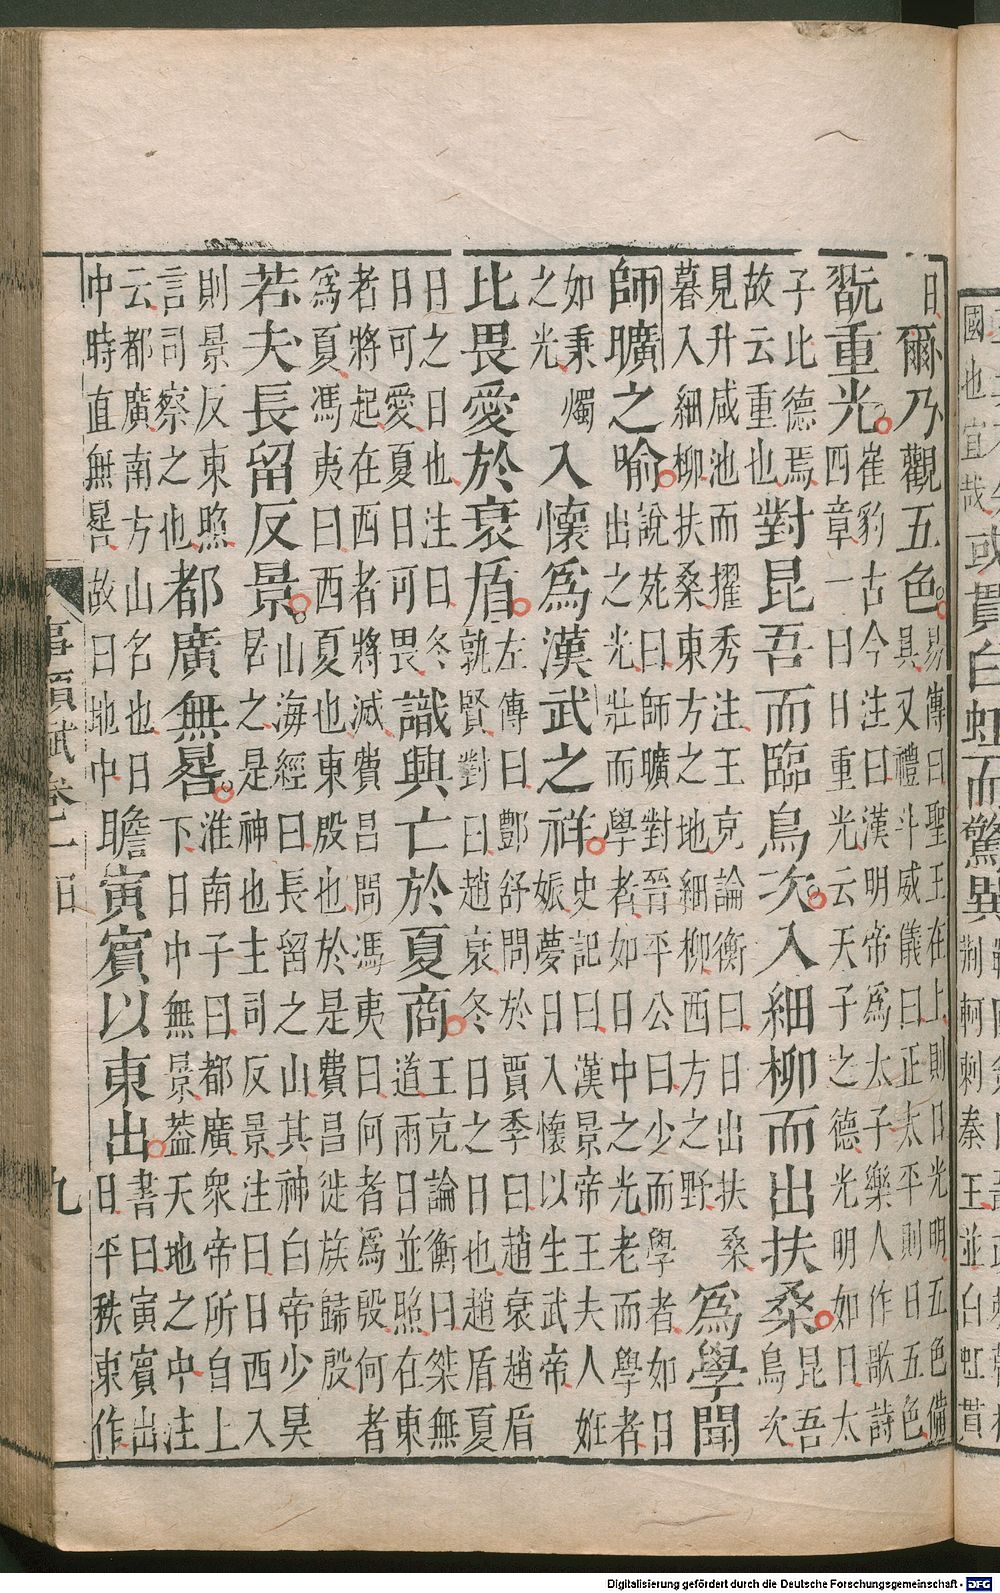 國也宜哉或貫白虹而驚異荊軻刺秦王並白虹貫
日爾乃觀五色。易傳曰聖王在上則日光明五色備
具又禮斗威儀曰正太平則日五色
翫重光。崔豹古今注曰漢明帝爲太子樂人作歌詩
四章一曰日重光云天子之德光明如日太
子比德焉
故云重也對昆吾而臨鳥次。入細柳而出扶桑。昆吾
鳥次
見升咸池而擢秀注王克論衡曰日出扶桑
暮入細柳扶桑東方之地細柳西方之野爲學聞
師曠之喻。說苑曰師曠對晉平公曰少而學者如日
出之光壯而學者如日中之光老而學者
如秉燭
之光入懷爲漢武之祥。史記曰漢景帝王夫人妊
娠夢日入懷以生武帝
比畏愛於衰盾。左傳曰酆舒問於賈季曰趙衰趙盾
孰賢對曰趙衰冬日之日也趙盾夏
日之日也注曰冬
日可愛夏日可畏識興亡於夏商。王克論衡曰桀無
道兩日並照在東
者將起在西者將滅費昌問馮夷曰何者爲殷何者
爲夏馮夷曰西夏也東殷也於是費昌徙族歸殷
若夫長留反景。山海經曰長留之山其神白帝少昊
居之是神也主司反景注曰日西入
則景反東照
言司察之也都廣無晷。淮南子曰都廣衆帝所自上
下日中無景葢天地之中注
云都廣南方山名也日
中時直無晷故曰地中瞻寅賓以東出。書曰寅賓出
日平秩東作
事類賦卷一 日 九
Digitalisierung gefördert durch die Deutsche Forschungsgemeinschaft - DFG